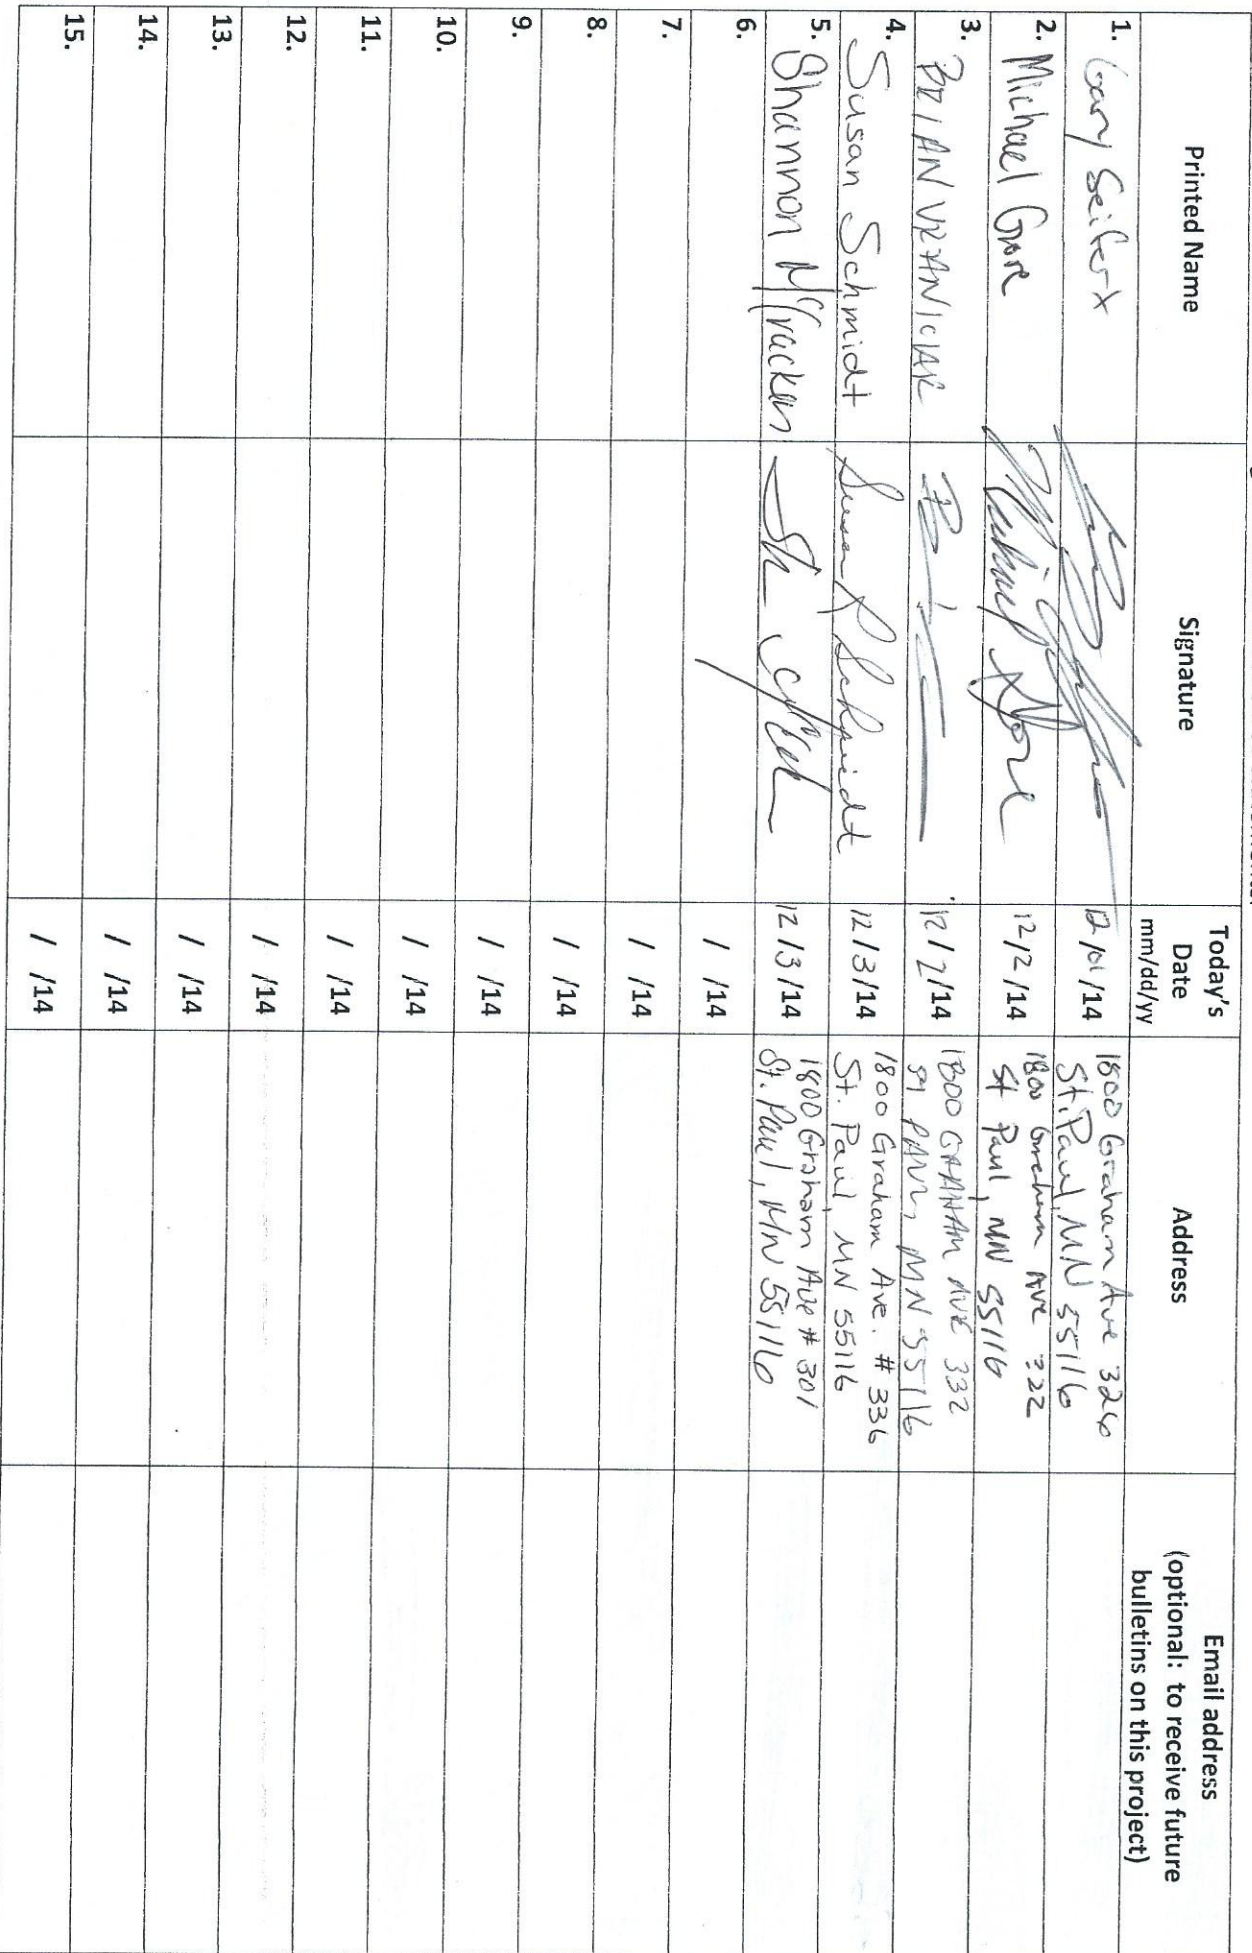 Printed Name
Signature
Today's
Date
mm/dd/yy
Address
Email address
(optional: to receive future
bulletins on this project)
1. Gary Seifert
12/01/14
1800 Graham Ave 326
St. Paul, MN 55116
2. Michael Gore
Michael Gore
12/2/14
1800 Graham Ave 322
St Paul, MN 55116
3. BRIAN VRANICAR
12/2/14
1800 GRAHAM AVE 332
ST PAUL, MN 55116
4. Susan Schmidt
Susan R Schmidt
12/3/14
1800 Graham Ave. # 336
St. Paul, MN 55116
5. Shannon McCracken
12/3/14
1800 Graham Ave # 301
St. Paul, MN 55116
6. / /14
7. / /14
8. / /14
9. / /14
10. / /14
11. / /14
12. / /14
13. / /14
14. / /14
15. / /14